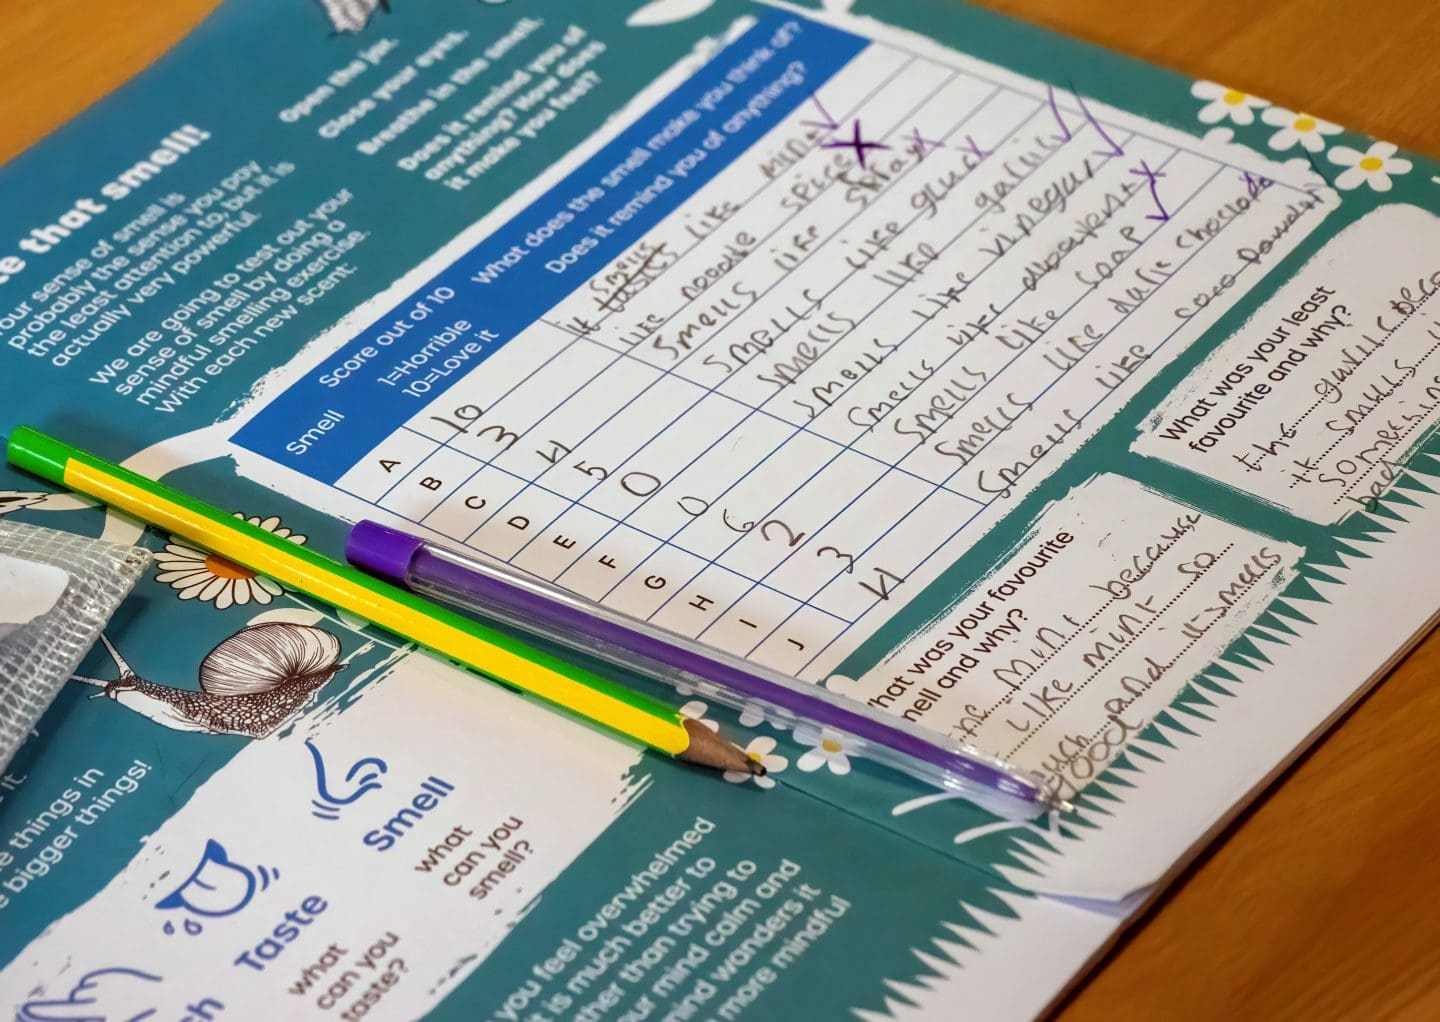 e that smell!
our sense of smell is
probably the sense you pay
the least attention to, but it is
actually very powerful.
We are going to test out your
sense of smell by doing a
mindful smelling exercise
with each new scent.
Open the jar.
Close your eyes.
Breathe in the smell.
Does it remind you of
anything? How does
it make you feel?
Smell
Score out of 10
1=Horrible
10=Love it
What does the smell make you think of?
Does it remind you of anything?
A 10 it smells like mint
B 3 like noodle spice
C 4 smells like
D 5 smells like
E 0 smells like
F 0 smells like vinegar
G 6 smells like
H 2 smells like soap
I 3 smells like dark
J 4 smells like
What was your least
favourite and why?
the
it smells
bad
hat was your favourite
mell and why?
because
like mint so
and it smells
good
it.
e things in
e bigger things!
Smell
what
can you
smell?
Taste
what
can you
taste?
ch
you feel overwhelmed
t is much better to
ther than trying to
our mind calm and
mind wanders it
more mindful